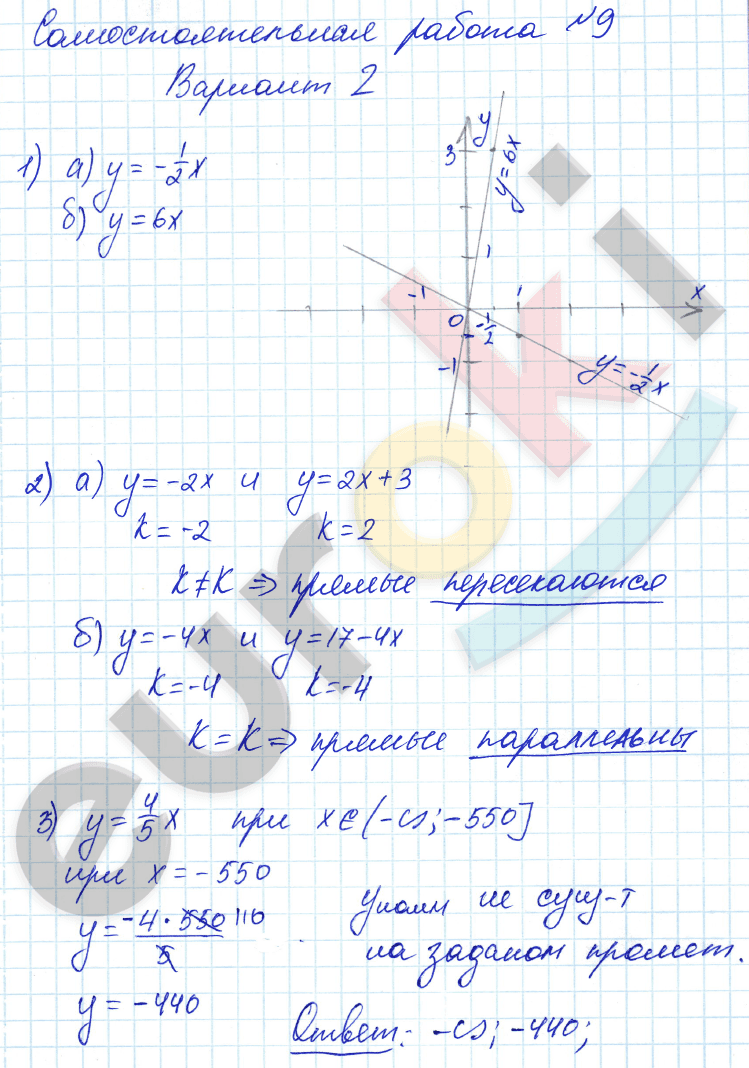 Самостоятельная работа №9
Вариант 2
1) а) y = -1/2x
б) y = 6x
y
3
y=6x
1
-1
1
x
0
-1/2
-1
y=-1/2x
2) а) y = -2x и y = 2x+3
k = -2 k = 2
k ≠ k ⇒ прямые пересекаются
б) y = -4x и y = 17-4x
k = -4 k = -4
k = k ⇒ прямые параллельны
3) y = 4/5x при x ∈ (-∞; -550]
при x = -550
y = -4·550 110/5
y = -440
Yнаим не сущ-т
на заданом промеж.
Ответ: -∞; -440;
euroki